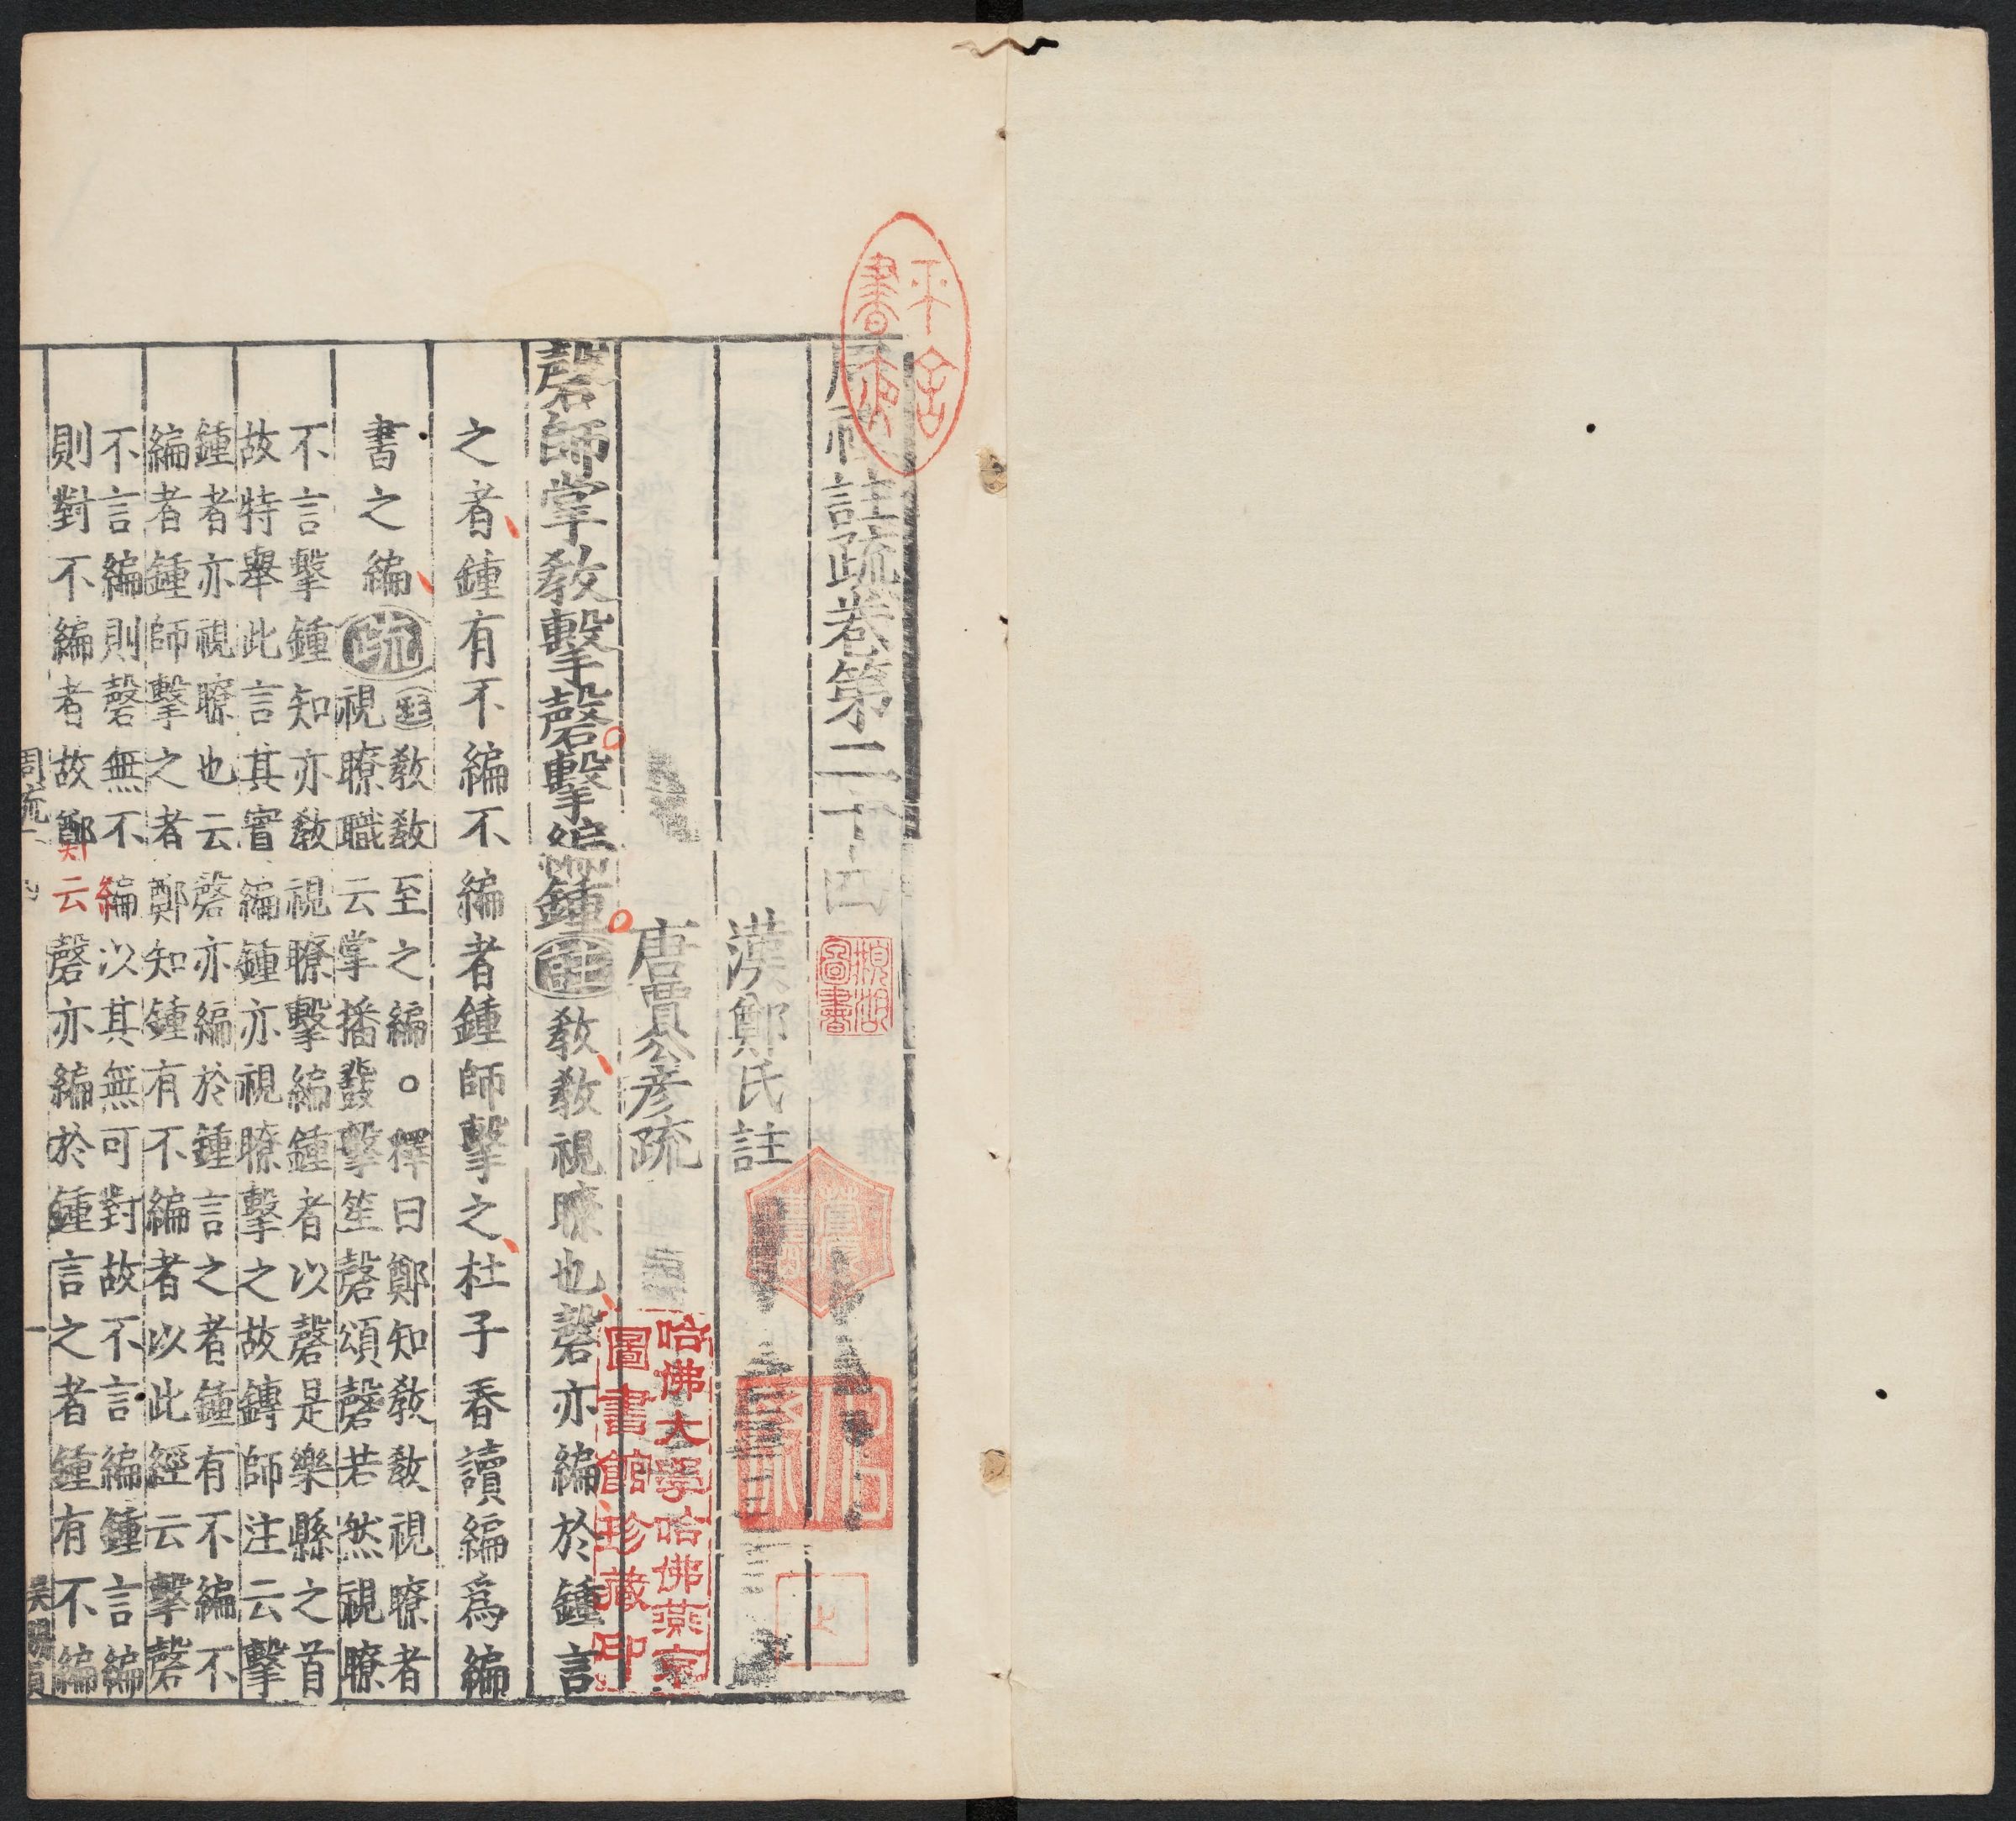 周禮註疏卷第二十四
漢鄭氏註
唐賈公彥疏
磬師掌教擊磬擊編鍾註教教視瞭也磬亦編於鍾言
之者鍾有不編不編者鍾師擊之杜子春讀編爲編
書之編疏註教教至之編○釋曰鄭知教教視瞭者
視瞭職云掌播鼗擊笙磬頌磬若然視瞭
不言擊鍾知亦教視瞭擊編鍾者以磬是樂縣之首
故特舉此言其實編鍾亦視瞭擊之故鏄師注云擊
鍾者亦視瞭也云磬亦編於鍾言之者鍾有不編不
編者鍾師擊之者鄭知鍾有不編者以此經云擊磬
不言編則磬無不編以其無可對故不言編鍾言編
則對不編者故鄭云磬亦編於鍾言之者鍾有不編
周疏
一
哈佛大學哈佛燕京
圖書館珍藏印
圖書